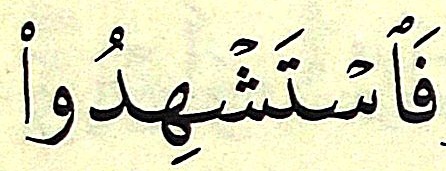 فَٱسۡتَشۡهِدُوا۟